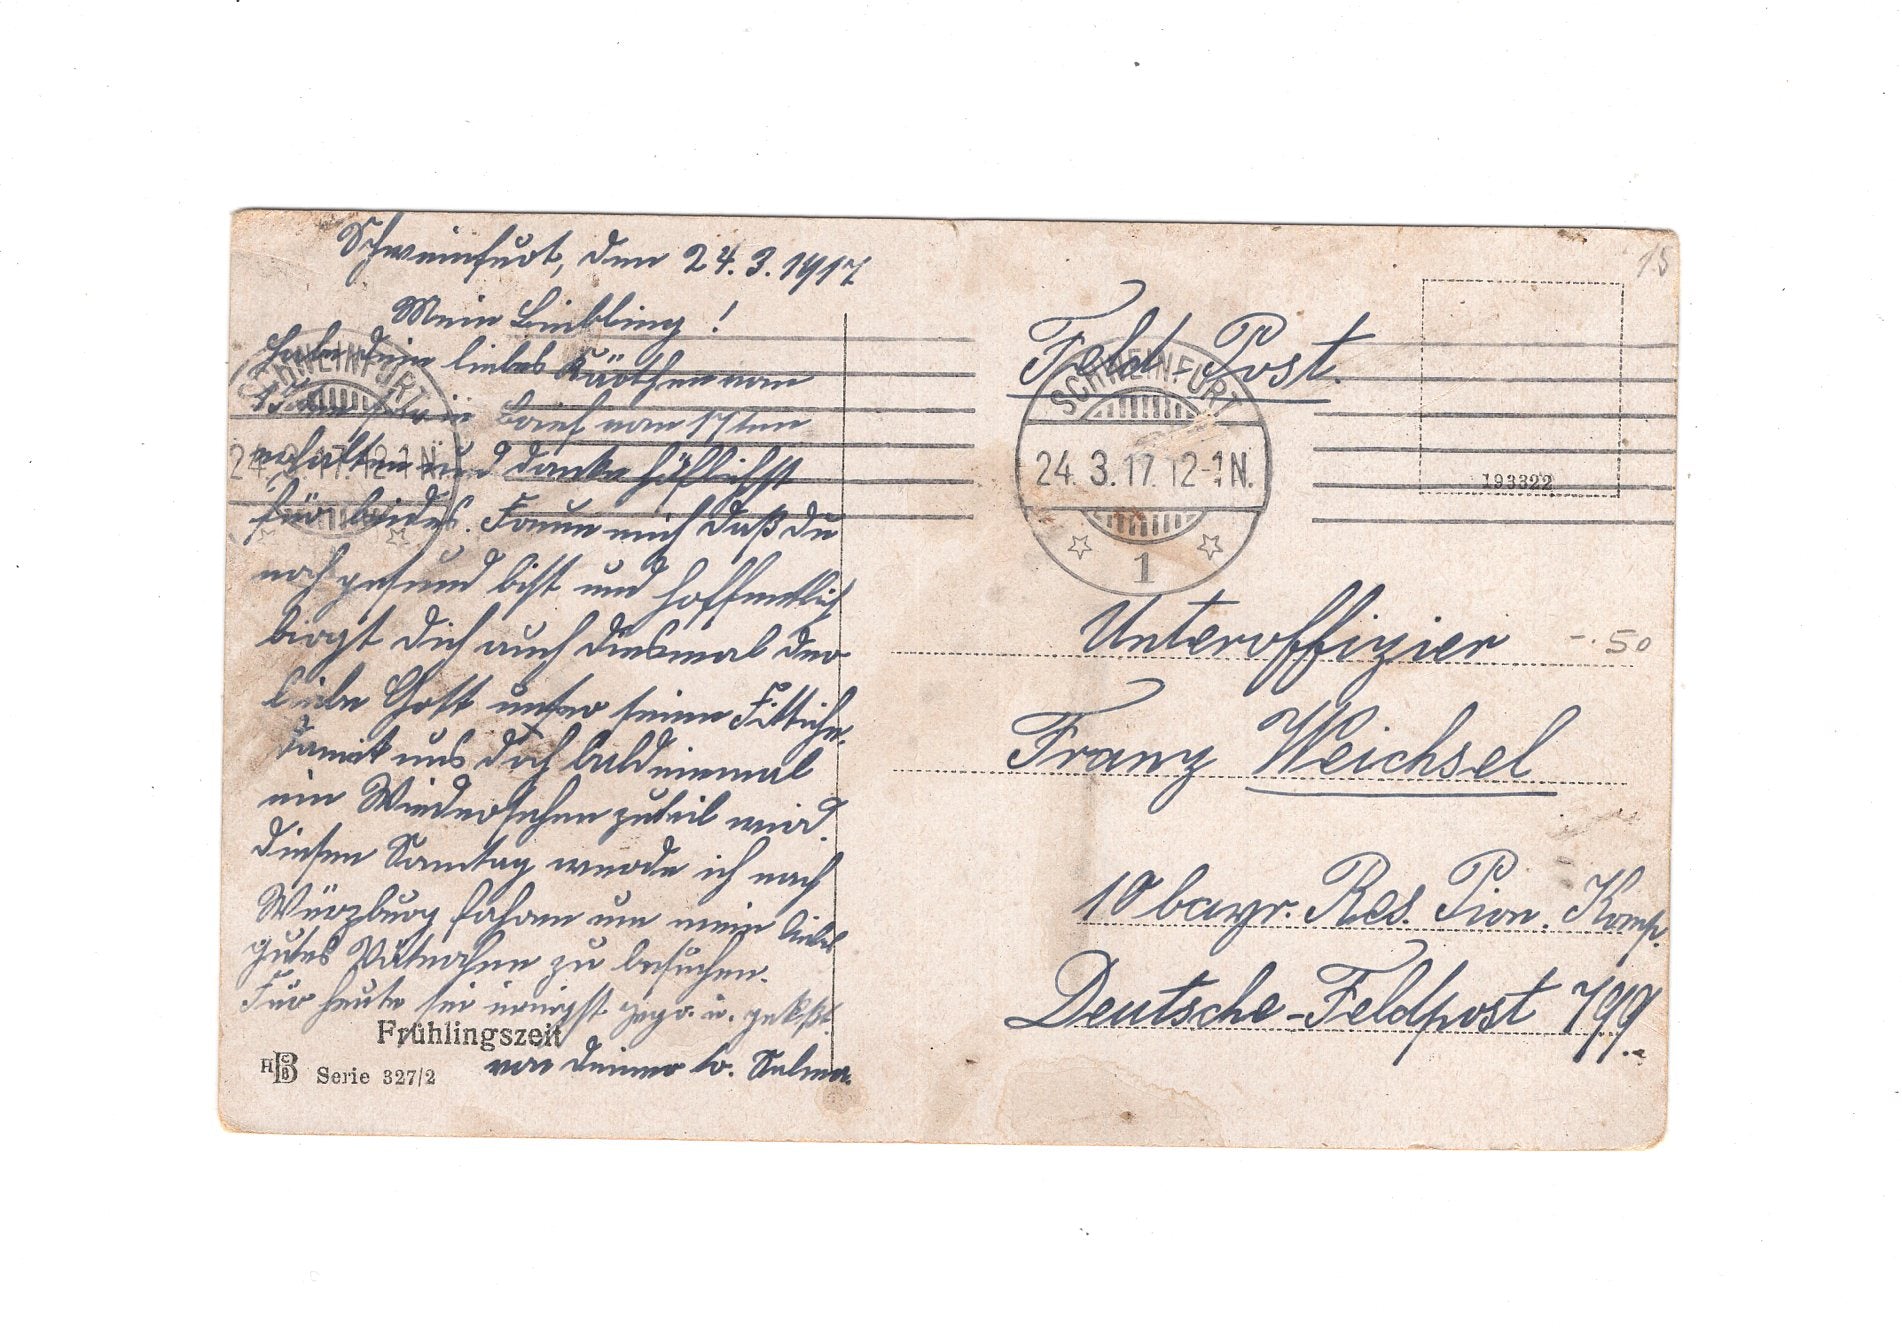 Schweinfurt, den 24.3.1917
Mein Liebling!
Habe Dein liebes Kärtchen vom
Brief vom 17ten
erhalten und danke höflichst
für beides. Freue mich daß Du
noch gesund bist und hoffentlich
birgt Dich auch diesmal der
liebe Gott unter seine Fittiche.
damit uns doch bald einmal
ein Wiedersehen zuteil wird.
Diesen Samtag werde ich nach
Würzburg fahren um mein liebes
gutes zu besuchen.
Für heute sei innigst gegr. u. geküßt
von Deiner lb. Selma.
Frühlingszeit
HB Serie 327/2
SCHWEINFURT
24.3.17. 12-1 N.
15
Feld-Post.
SCHWEINFURT
24.3.17. 12-1 N.
1
193322
Unteroffizier
-.50
Franz Weichsel
10 bayr. Res. Pion. Komp.
Deutsche-Feldpost 799